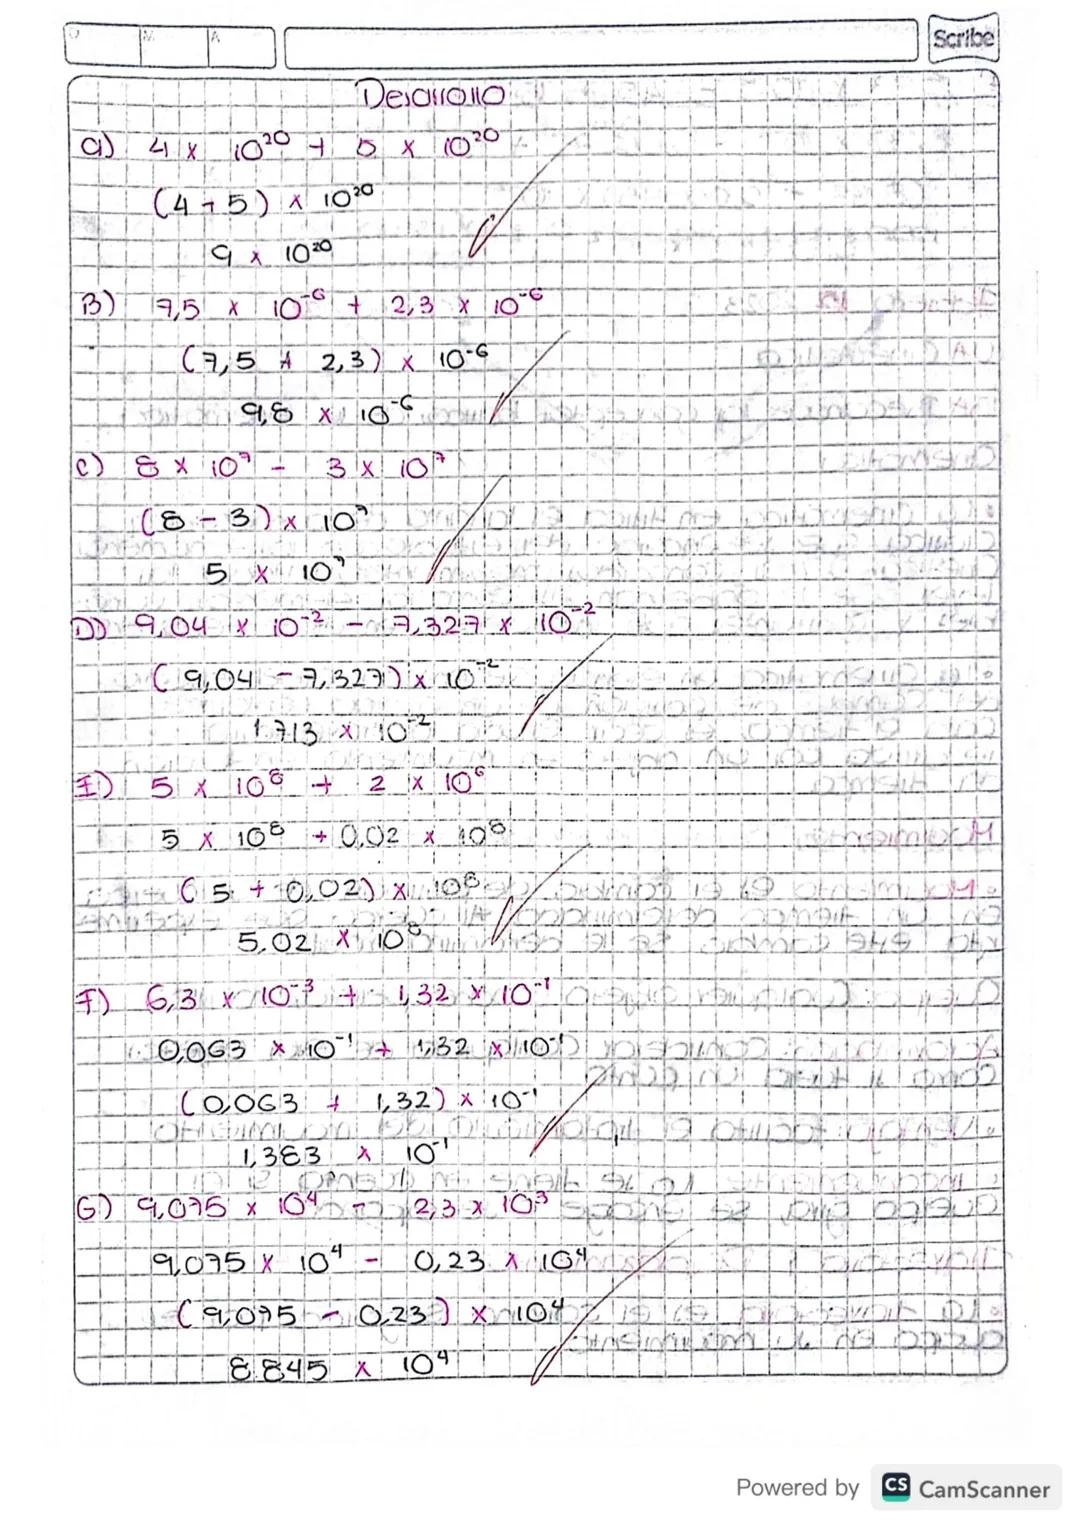 D M A
Scribe
Desarrollo
a) 4 x 10²⁰ + 5 x 10²⁰
(4 + 5) x 10²⁰
9 x 10²⁰
B) 7,5 x 10⁻⁶ + 2,3 x 10⁻⁶
(7,5 + 2,3) x 10⁻⁶
9,8 x 10⁻⁶
C) 8 x 10⁷ - 3 x 10⁷
(8 - 3) x 10⁷
5 x 10⁷
D) 9,04 x 10⁻² - 7,327 x 10⁻²
(9,04 - 7,327) x 10⁻²
1.713 x 10⁻²
E) 5 x 10⁸ + 2 x 10⁶
5 x 10⁸ + 0,02 x 10⁸
(5 + 0,02) x 10⁸
5,02 x 10⁸
F) 6,3 x 10⁻³ + 1,32 x 10⁻¹
0,063 x 10⁻¹ + 1,32 x 10⁻¹
(0,063 + 1,32) x 10⁻¹
1,383 x 10⁻¹
G) 9,075 x 10⁴ - 2,3 x 10³
9,075 x 10⁴ - 0,23 x 10⁴
(9,075 - 0,23) x 10⁴
8.845 x 10⁴
Powered by CS CamScanner